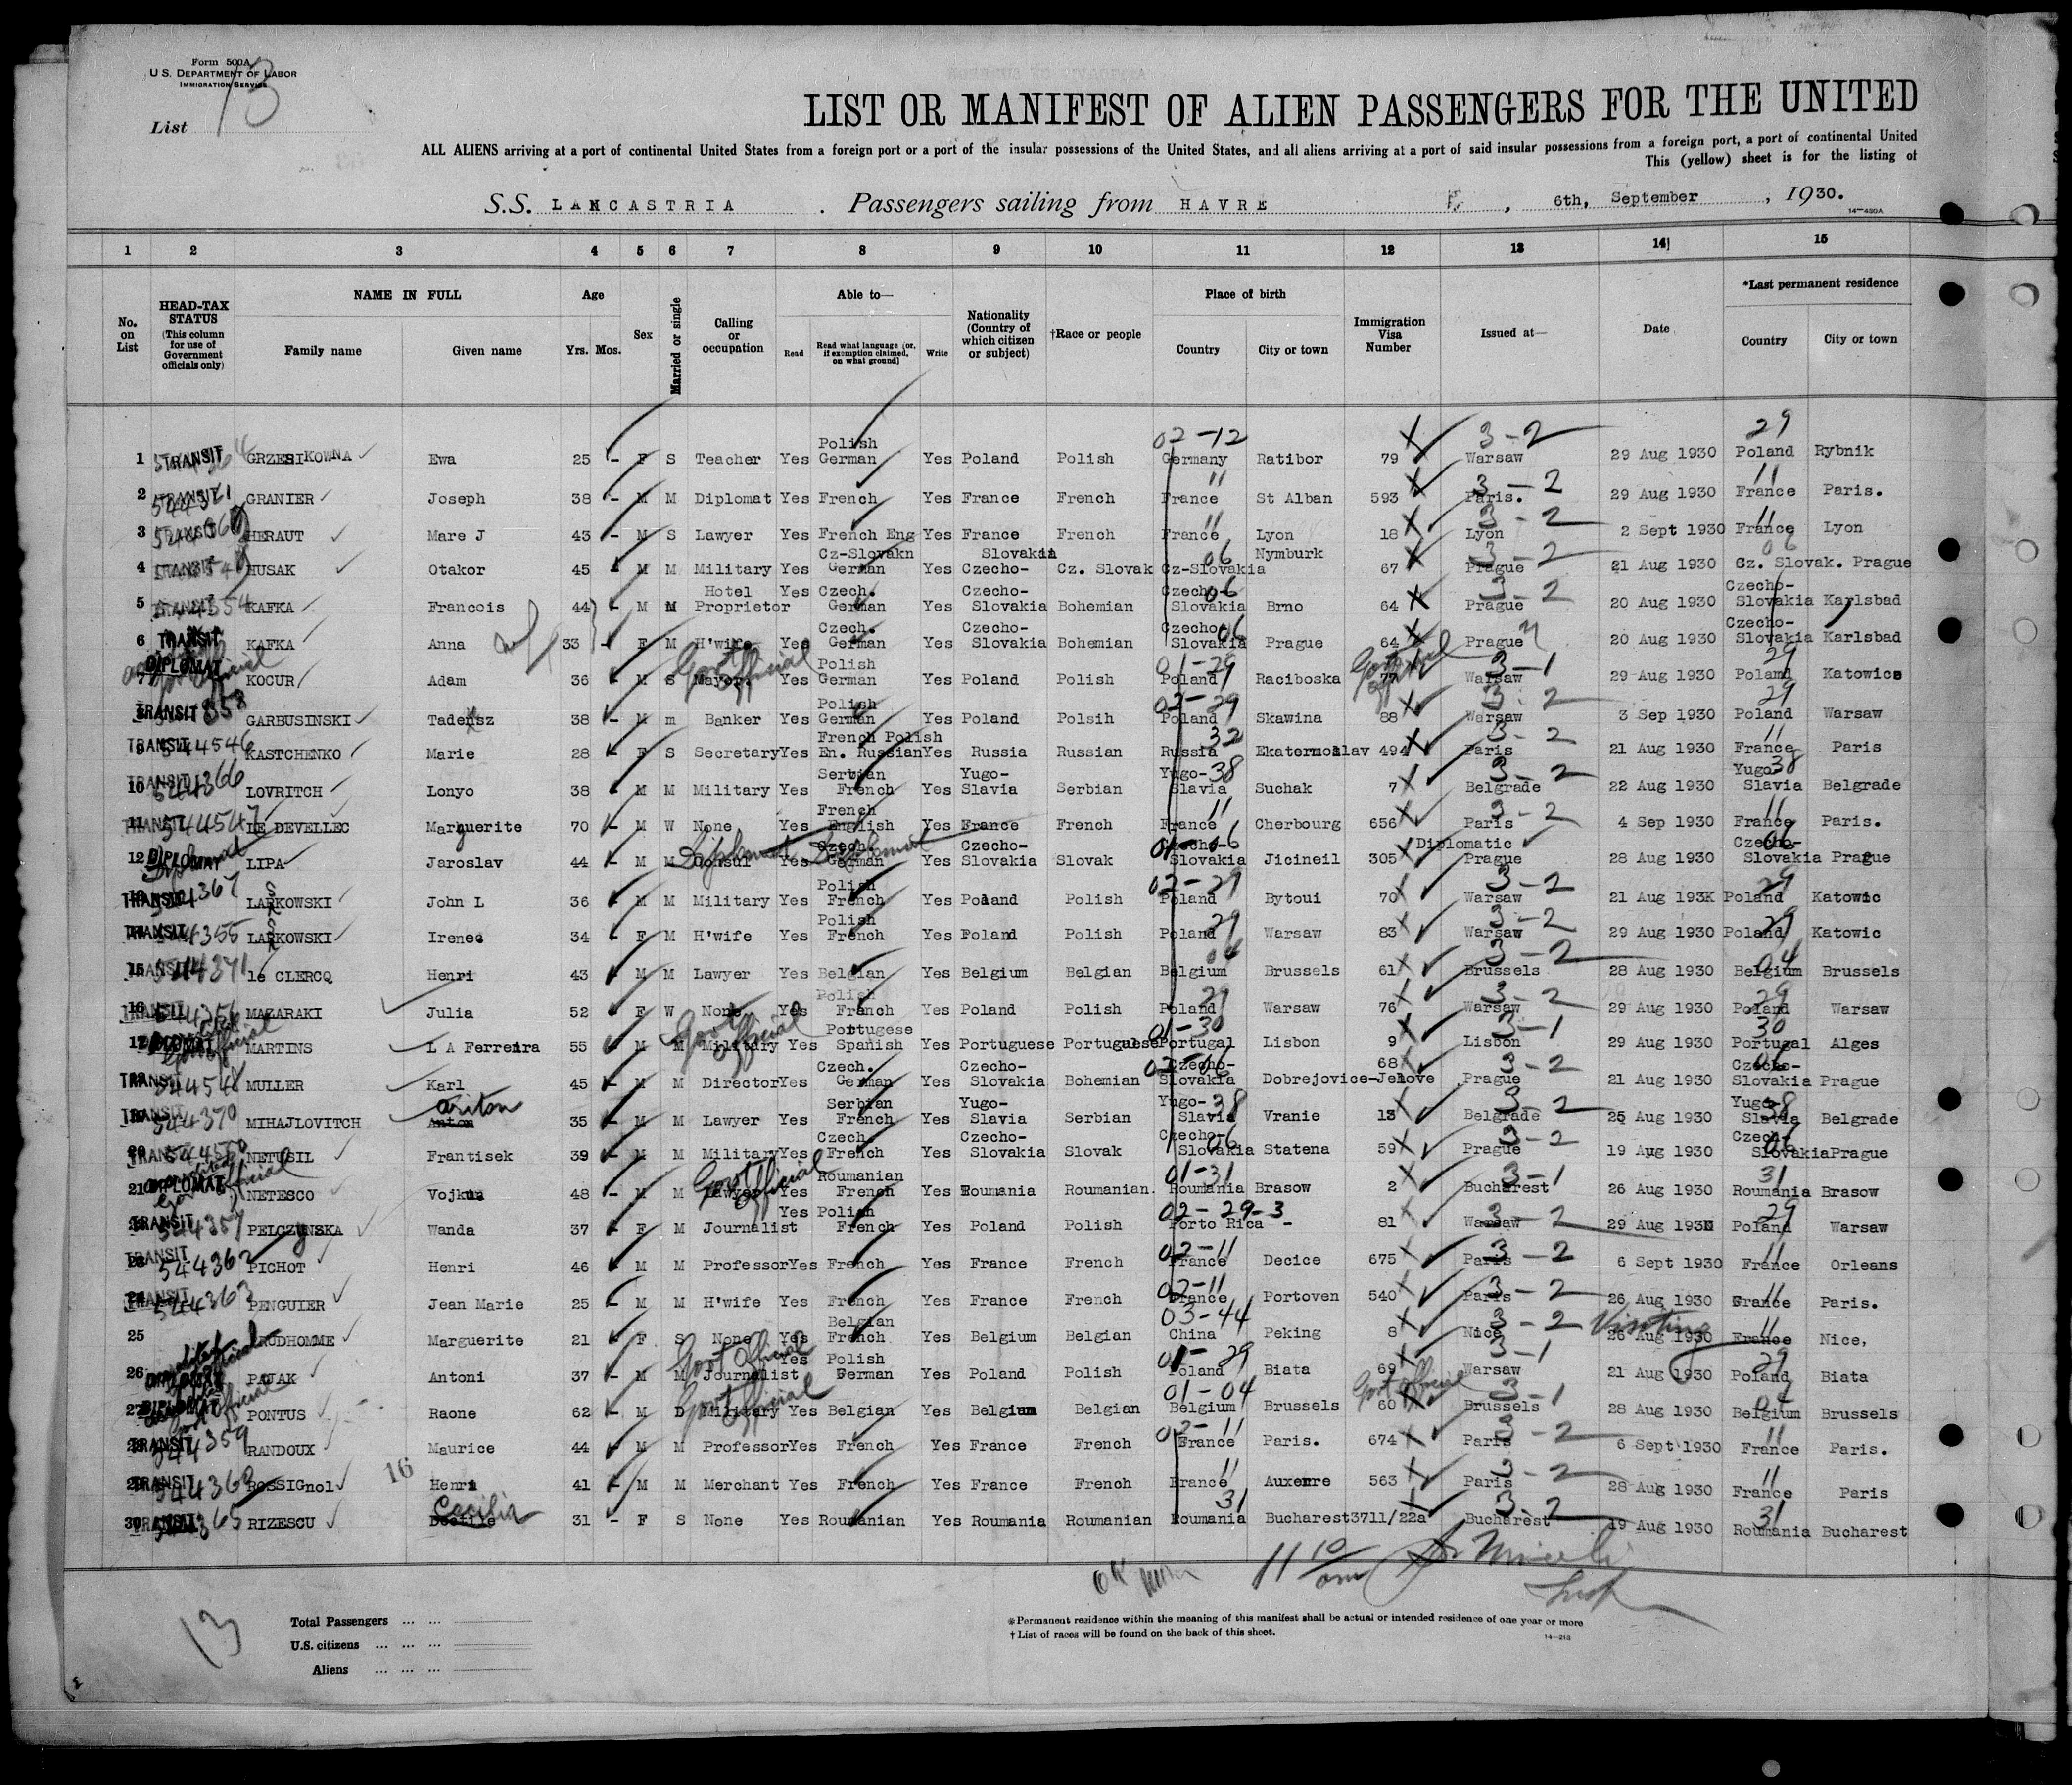 Form 500A
U.S. DEPARTMENT OF LABOR
IMMIGRATION SERVICE
List 13
LIST OR MANIFEST OF ALIEN PASSENGERS FOR THE UNITED
ALL ALIENS arriving at a port of continental United States from a foreign port or a port of the insular possessions of the United States, and all aliens arriving at a port of said insular possessions from a foreign port, a port of continental United
This (yellow) sheet is for the listing of
S.S. LANCASTRIA . Passengers sailing from HAVRE , 6th, September , 1930.
14-430A
1 2 3 4 5 6 7 8 9 10 11 12 13 14 15
No. on List HEAD-TAX STATUS (This column for use of Government officials only) NAME IN FULL Family name Given name Age Yrs. Mos. Sex Married or single Calling or occupation Able to— Read Read what language (or, if exemption claimed, on what ground) Write Nationality (Country of which citizen or subject) †Race or people Place of birth Country City or town Immigration Visa Number Issued at— Date *Last permanent residence Country City or town
1 TRANSIT GRZESIKOWNA Ewa 25 - F S Teacher Yes Polish German Yes Poland Polish 02-12 Germany Ratibor 79 3-2 Warsaw 29 Aug 1930 29 Poland Rybnik
2 TRANSIT GRANIER Joseph 38 - M M Diplomat Yes French Yes France French 11 France St Alban 593 3-2 Paris. 29 Aug 1930 11 France Paris.
3 HERAUT Mare J 43 - M S Lawyer Yes French Eng Yes France French 11 France Lyon 18 3-2 Lyon 2 Sept 1930 11 France Lyon
4 TRANSIT HUSAK Otakor 45 - M M Military Yes Cz-Slovakn German Yes Czecho-Slovakia Cz. Slovak 06 Cz-Slovakia Nymburk 67 3-2 Prague 21 Aug 1930 06 Cz. Slovak. Prague
5 KAFKA Francois 44 - M M Hotel Proprietor Yes Czech. German Yes Czecho-Slovakia Bohemian 06 Czecho-Slovakia Brno 64 3-2 Prague 20 Aug 1930 Czecho-Slovakia Karlsbad
6 TRANSIT KAFKA Anna 33 - F M H'wife Yes Czech. German Yes Czecho-Slovakia Bohemian 06 Czecho-Slovakia Prague 64 Prague 20 Aug 1930 Czecho-Slovakia Karlsbad
7 DIPLOMAT KOCUR Adam 36 - M S Mayor. Govt Official Yes Polish German Yes Poland Polish 01-29 Poland Raciboska 77 Govt Official 3-1 Warsaw 29 Aug 1930 29 Poland Katowice
TRANSIT GARBUSINSKI Tadeusz 38 - M m Banker Yes Polish German Yes Poland Polsih 02-29 Poland Skawina 88 3-2 Warsaw 3 Sep 1930 29 Poland Warsaw
9 TRANSIT 544546 KASTCHENKO Marie 28 - F S Secretary Yes French Polish En. Russian Yes Russia Russian 32 Russia Ekaternoslav 494 3-2 Paris 21 Aug 1930 11 France Paris
10 TRANSIT 544366 LOVRITCH Lonyo 38 - M M Military Yes Serbian French Yes Yugo-Slavia Serbian 38 Yugo-Slavia Suchak 7 3-2 Belgrade 22 Aug 1930 38 Yugo-Slavia Belgrade
11 TRANSIT 544547 LE DEVELLEC Marguerite 70 - M W None Yes French English Yes France French 11 France Cherbourg 656 3-2 Paris 4 Sep 1930 11 France Paris.
12 DIPLOMAT LIPA Jaroslav 44 - M M Consul Diplomat Yes Czech. German Diplomat Yes Czecho-Slovakia Slovak 01-06 Czecho-Slovakia Jicineil 305 Diplomatic Prague 28 Aug 1930 06 Czecho-Slovakia Prague
13 TRANSIT LASKOWSKI John L 36 - M M Military Yes Polish French Yes Poland Polish 02-29 Poland Bytoui 70 3-2 Warsaw 21 Aug 193 29 Poland Katowic
14 TRANSIT 544355 LASKOWSKI Irenee 34 - F M H'wife Yes Polish French Yes Poland Polish 29 Poland Warsaw 83 3-2 Warsaw 29 Aug 1930 29 Poland Katowic
15 TRANSIT 544371 le CLERCQ Henri 43 - M M Lawyer Yes Belgian Yes Belgium Belgian 04 Belgium Brussels 61 3-2 Brussels 28 Aug 1930 04 Belgium Brussels
16 TRANSIT 544356 MAZARAKI Julia 52 - F W None Yes Polish French Yes Poland Polish 29 Poland Warsaw 76 3-2 Warsaw 29 Aug 1930 29 Poland Warsaw
17 DIPLOMAT Govt Official MARTINS L A Ferreira 55 - M M Military Govt Official Yes Portugese Spanish Yes Portuguese Portuguese 01-30 Portugal Lisbon 9 3-1 Lisbon 29 Aug 1930 30 Portugal Alges
TRANSIT 544548 MULLER Karl 45 - M M Director Yes Czech. German Yes Czecho-Slovakia Bohemian 02-06 Czecho-Slovakia Dobrejovice-Jelove 68 3-2 Prague 21 Aug 1930 06 Czecho-Slovakia Prague
19 TRANSIT 544370 MIHAJLOVITCH Anton Ariton 35 - M M Lawyer Yes Serbian French Yes Yugo-Slavia Serbian 38 Yugo-Slavia Vranie 13 3-2 Belgrade 25 Aug 1930 38 Yugo-Slavia Belgrade
20 TRANSIT NETUSIL Frantisek 39 - M M Military Yes Czech. French Yes Czecho-Slovakia Slovak 06 Czecho-Slovakia Statena 59 3-2 Prague 19 Aug 1930 06 Czech-Slovakia Prague
21 DIPLOMAT NETESCO Vojkua 48 - M M Lawyer Govt Official Yes Roumanian French Yes Roumania Roumanian. 01-31 Roumania Brasow 2 3-1 Bucharest 26 Aug 1930 31 Roumania Brasow
TRANSIT 544357 PELCZYNSKA Wanda 37 - F M Journalist Yes Polish French Yes Poland Polish 02-29-3 Porto Rica - 81 3-2 Warsaw 29 Aug 1930 29 Poland Warsaw
23 TRANSIT 544362 PICHOT Henri 46 - M M Professor Yes French Yes France French 02-11 France Decice 675 3-2 Paris 6 Sept 1930 11 France Orleans
24 TRANSIT 544363 PENGUIER Jean Marie 25 - M M H'wife Yes French Yes France French 02-11 France Portoven 540 3-2 Paris 26 Aug 1930 11 France Paris.
25 PRUDHOMME Marguerite 21 - F S None Yes Belgian French Yes Belgium Belgian 03-44 China Peking 8 3-2 Nice Visiting 26 Aug 1930 11 France Nice,
26 DIPLOMAT PAJAK Antoni 37 - M M Journalist Govt Official Yes Polish German Yes Poland Polish 01-29 Poland Biata 69 3-1 Warsaw 21 Aug 1930 29 Poland Biata
27 DIPLOMAT Govt Official PONTUS Raone 62 - M D Military Govt Official Yes Belgian Yes Belgium Belgian 01-04 Belgium Brussels 60 Govt Official 3-1 Brussels 28 Aug 1930 04 Belgium Brussels
28 TRANSIT 544359 RANDOUX Maurice 44 - M M Professor Yes French Yes France French 02-11 France Paris. 674 3-2 Paris 6 Sept 1930 11 France Paris.
29 TRANSIT ROSSIGnol 16 Henri 41 - M M Merchant Yes French Yes France French 11 France Auxerre 563 3-2 Paris 28 Aug 1930 11 France Paris
30 TRANSIT RIZESCU Cecilia 31 - F S None Yes Roumanian Yes Roumania Roumanian 31 Roumania Bucharest 3711/22a 3-2 Bucharest 19 Aug 1930 31 Roumania Bucharest
OK 11 10/am Insp
13
Total Passengers ... ...
U.S. citizens ... ... ...
Aliens ... ... ...
*Permanent residence within the meaning of this manifest shall be actual or intended residence of one year or more
†List of races will be found on the back of this sheet.
14-213